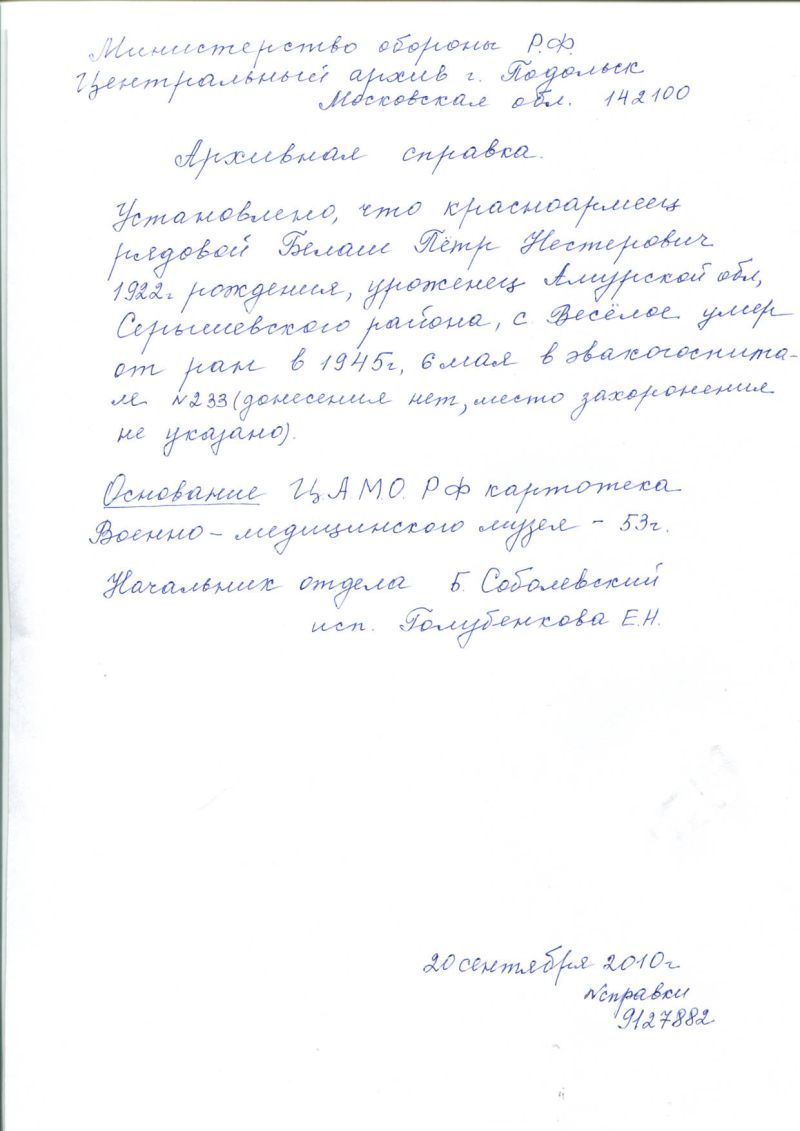 Министерство обороны Р.Ф.
Центральный архив г. Подольск
Московская обл. 142100
Архивная справка.
Установлено, что красноармеец
рядовой Белаш Пётр Нестерович
1922г рождения, уроженец Амурской обл,
Серышевского района, с. Весёлое умер
от ран в 1945г, 6 мая в эвакогоспита-
ле №233 (донесения нет, место захоронения
не указано).
Основание Ц.А.М.О. РФ картотека
Военно-медицинского музея - 53г.
Начальник отдела Б. Соболевский
исп. Голубенкова Е.Н.
20 сентября 2010г
№справки
9127882